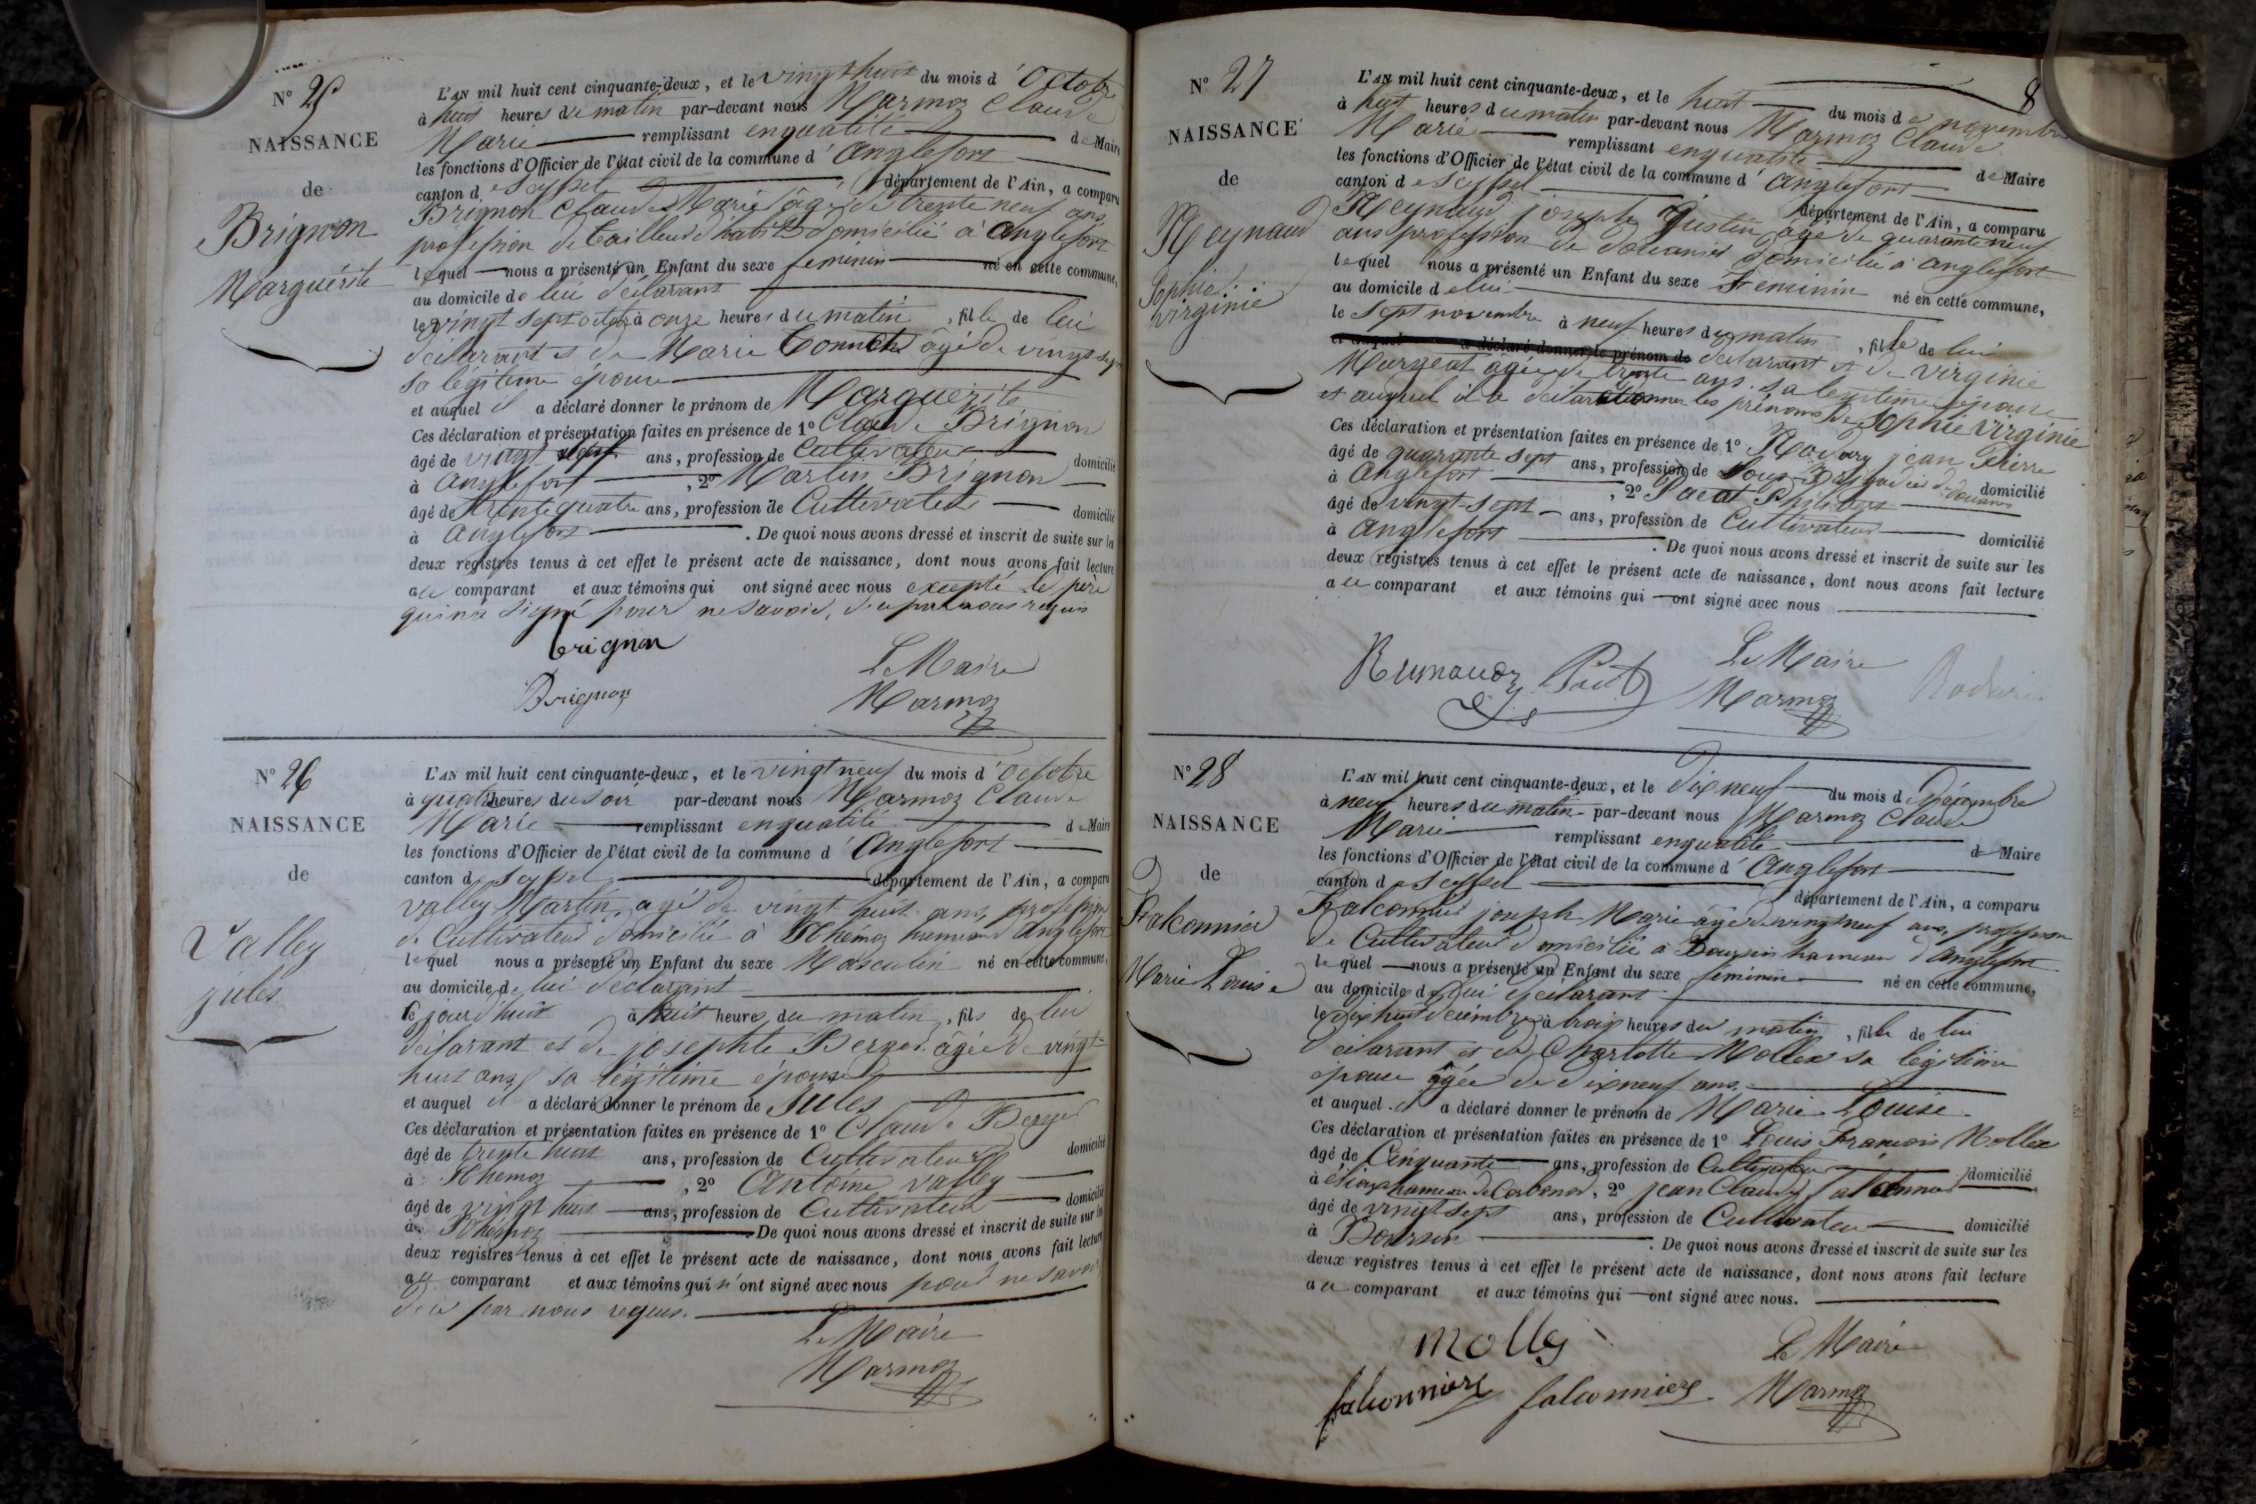 N° 25
NAISSANCE
de
Brignon
Marguérite
L'AN mil huit cent cinquante-deux, et le vingt huit du mois d'octobre
à huit heures du matin par-devant nous Marmoz Claude
Marie remplissant en qualité de Maire
les fonctions d'Officier de l'état civil de la commune d'Anglefort
canton de Seyssel département de l'Ain, a comparu
Brignon Claude Marie âgé de trente neuf ans
profession de tailleur d'habits domicilié à Anglefort
lequel nous a présenté un Enfant du sexe feminin né en cette commune,
au domicile de lui déclarant
le vingt sept octobre à onze heures du matin, fille de lui
déclarant et de Marie âgé de vingt sept
sa légitime épouse
et auquel il a déclaré donner le prénom de Marguérite
Ces déclaration et présentation faites en présence de 1° Claude Brignon
âgé de vingt ans, profession de Cultivateur domicilié
à Anglefort, 2° Martin Brignon
âgé de trente quatre ans, profession de Cultivateur domicilié
à Anglefort. De quoi nous avons dressé et inscrit de suite sur les
deux registres tenus à cet effet le présent acte de naissance, dont nous avons fait lecture
au comparant et aux témoins qui ont signé avec nous excepté le père
qui n'a signé pour ne savoir, de ce par nous requis
brignon
Brignon
Le Maire
Marmoz
N° 26
NAISSANCE
de
Valley
jules
L'AN mil huit cent cinquante-deux, et le vingt neuf du mois d'octobre
à quatre heures du soir par-devant nous Marmoz Claude
Marie remplissant en qualité de Maire
les fonctions d'Officier de l'état civil de la commune d'Anglefort
canton de Seyssel département de l'Ain, a comparu
Valley Martin, agé de vingt huit ans, profession
de Cultivateur domicilié à Rhémoz hameau d'Anglefort
lequel nous a présenté un Enfant du sexe Masculin né en cette commune,
au domicile de lui déclarant
le jourd'huit à huit heures du matin, fils de lui
déclarant et de josephte Berger âgée de vingt
huit ans, sa légitime épouse
et auquel il a déclaré donner le prénom de Jules
Ces déclaration et présentation faites en présence de 1° Claude Berger
âgé de trente huit ans, profession de Cultivateur domicilié
à Rhemoz, 2° Antoine Valley
âgé de vingt huit ans, profession de Cultivateur domicilié
à Rhémoz. De quoi nous avons dressé et inscrit de suite sur les
deux registres tenus à cet effet le présent acte de naissance, dont nous avons fait lecture
au comparant et aux témoins qui n'ont signé avec nous pour ne savoir
de ce par nous requis.
Le Maire
Marmoz
8
N° 27
NAISSANCE
de
Reynaud
Sophie
virginie
L'AN mil huit cent cinquante-deux, et le huit du mois de novembre
à huit heures du matin par-devant nous Marmoz Claude
Marie remplissant en qualité de Maire
les fonctions d'Officier de l'état civil de la commune d'Anglefort
canton de Seyssel département de l'Ain, a comparu
Reynaud joseph Justin âgé de quarante neuf
ans profession de douanier domicilié à Anglefort
lequel nous a présenté un Enfant du sexe Feminin né en cette commune,
au domicile de lui
le sept novembre à neuf heures du matin, fille de lui
et auquel a déclaré donner le prénom de déclarant et de virginie
Margeat agée de trente ans. sa légitime épouse
et auquel il a déclaré donner les prénoms de Sophie Virginie
Ces déclaration et présentation faites en présence de 1° jean Pierre
âgé de quarante sept ans, profession de Sous Brigadier de douanes domicilié
à Anglefort, 2° Pacat Philibert
âgé de vingt-sept ans, profession de Cultivateur domicilié
à Anglefort. De quoi nous avons dressé et inscrit de suite sur les
deux registres tenus à cet effet le présent acte de naissance, dont nous avons fait lecture
au comparant et aux témoins qui ont signé avec nous
Le Maire
Marmoz
N° 28
NAISSANCE
de
Falconnier
Marie Louise
L'AN mil huit cent cinquante-deux, et le dix neuf du mois de Décembre
à neuf heures du matin par-devant nous Marmoz Claude
Marie remplissant en qualité de Maire
les fonctions d'Officier de l'état civil de la commune d'Anglefort
canton de Seyssel département de l'Ain, a comparu
Falconnier joseph Marie âgé de vingt neuf ans, profession
de Cultivateur domicilié à Boursin hameau d'Anglefort
lequel nous a présenté un Enfant du sexe feminin né en cette commune,
au domicile de lui déclarant
le dix huit décembre à trois heures du matin, fille de lui
déclarant et de Charlotte Mollex sa légitime
épouse âgée de dix neuf ans.
et auquel il a déclaré donner le prénom de Marie Louise.
Ces déclaration et présentation faites en présence de 1° Louis François Mollex
âgé de Cinquante ans, profession de Cultivateur domicilié
à hameau de Corbonod, 2° jean Claude falconnier
âgé de vingt sept ans, profession de Cultivateur domicilié
à Boursin. De quoi nous avons dressé et inscrit de suite sur les
deux registres tenus à cet effet le présent acte de naissance, dont nous avons fait lecture
au comparant et aux témoins qui ont signé avec nous.
Le Maire
falconnier falconnier Marmoz